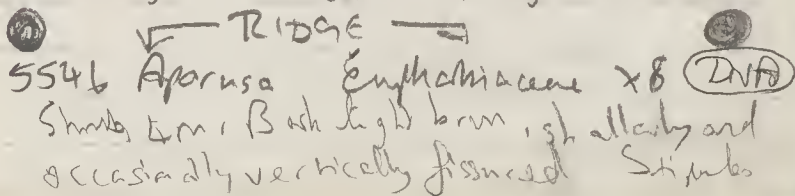 RIDGE
5546 Aporusa Euphorbiaceae x8 DNA
Shrub, 4m, Bark light brown, shallowly and
occasionally vertically fissured Stipules